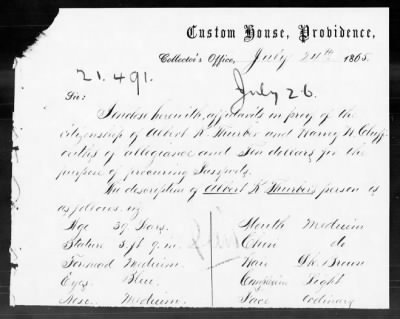 Custom House, Providence,
Collector's Office, July 24th 1865
21.491.
July 26.
Sir:
I enclose herewith, affidavits in proof of the
citizenship of Albert K Thurber and Harvey N. Cluff
oaths of allegiance and Ten dollars for the
purpose of procuring Passports.
The description of Albert K Thurber's person is
as follows. viz
Age 39 Years. Mouth Medium
Stature 5 ft 9 in. Chin do
Forehead Medium. Hair Dk. Brown
Eyes Blue. Complexion Light
Nose Medium. Face Ordinary